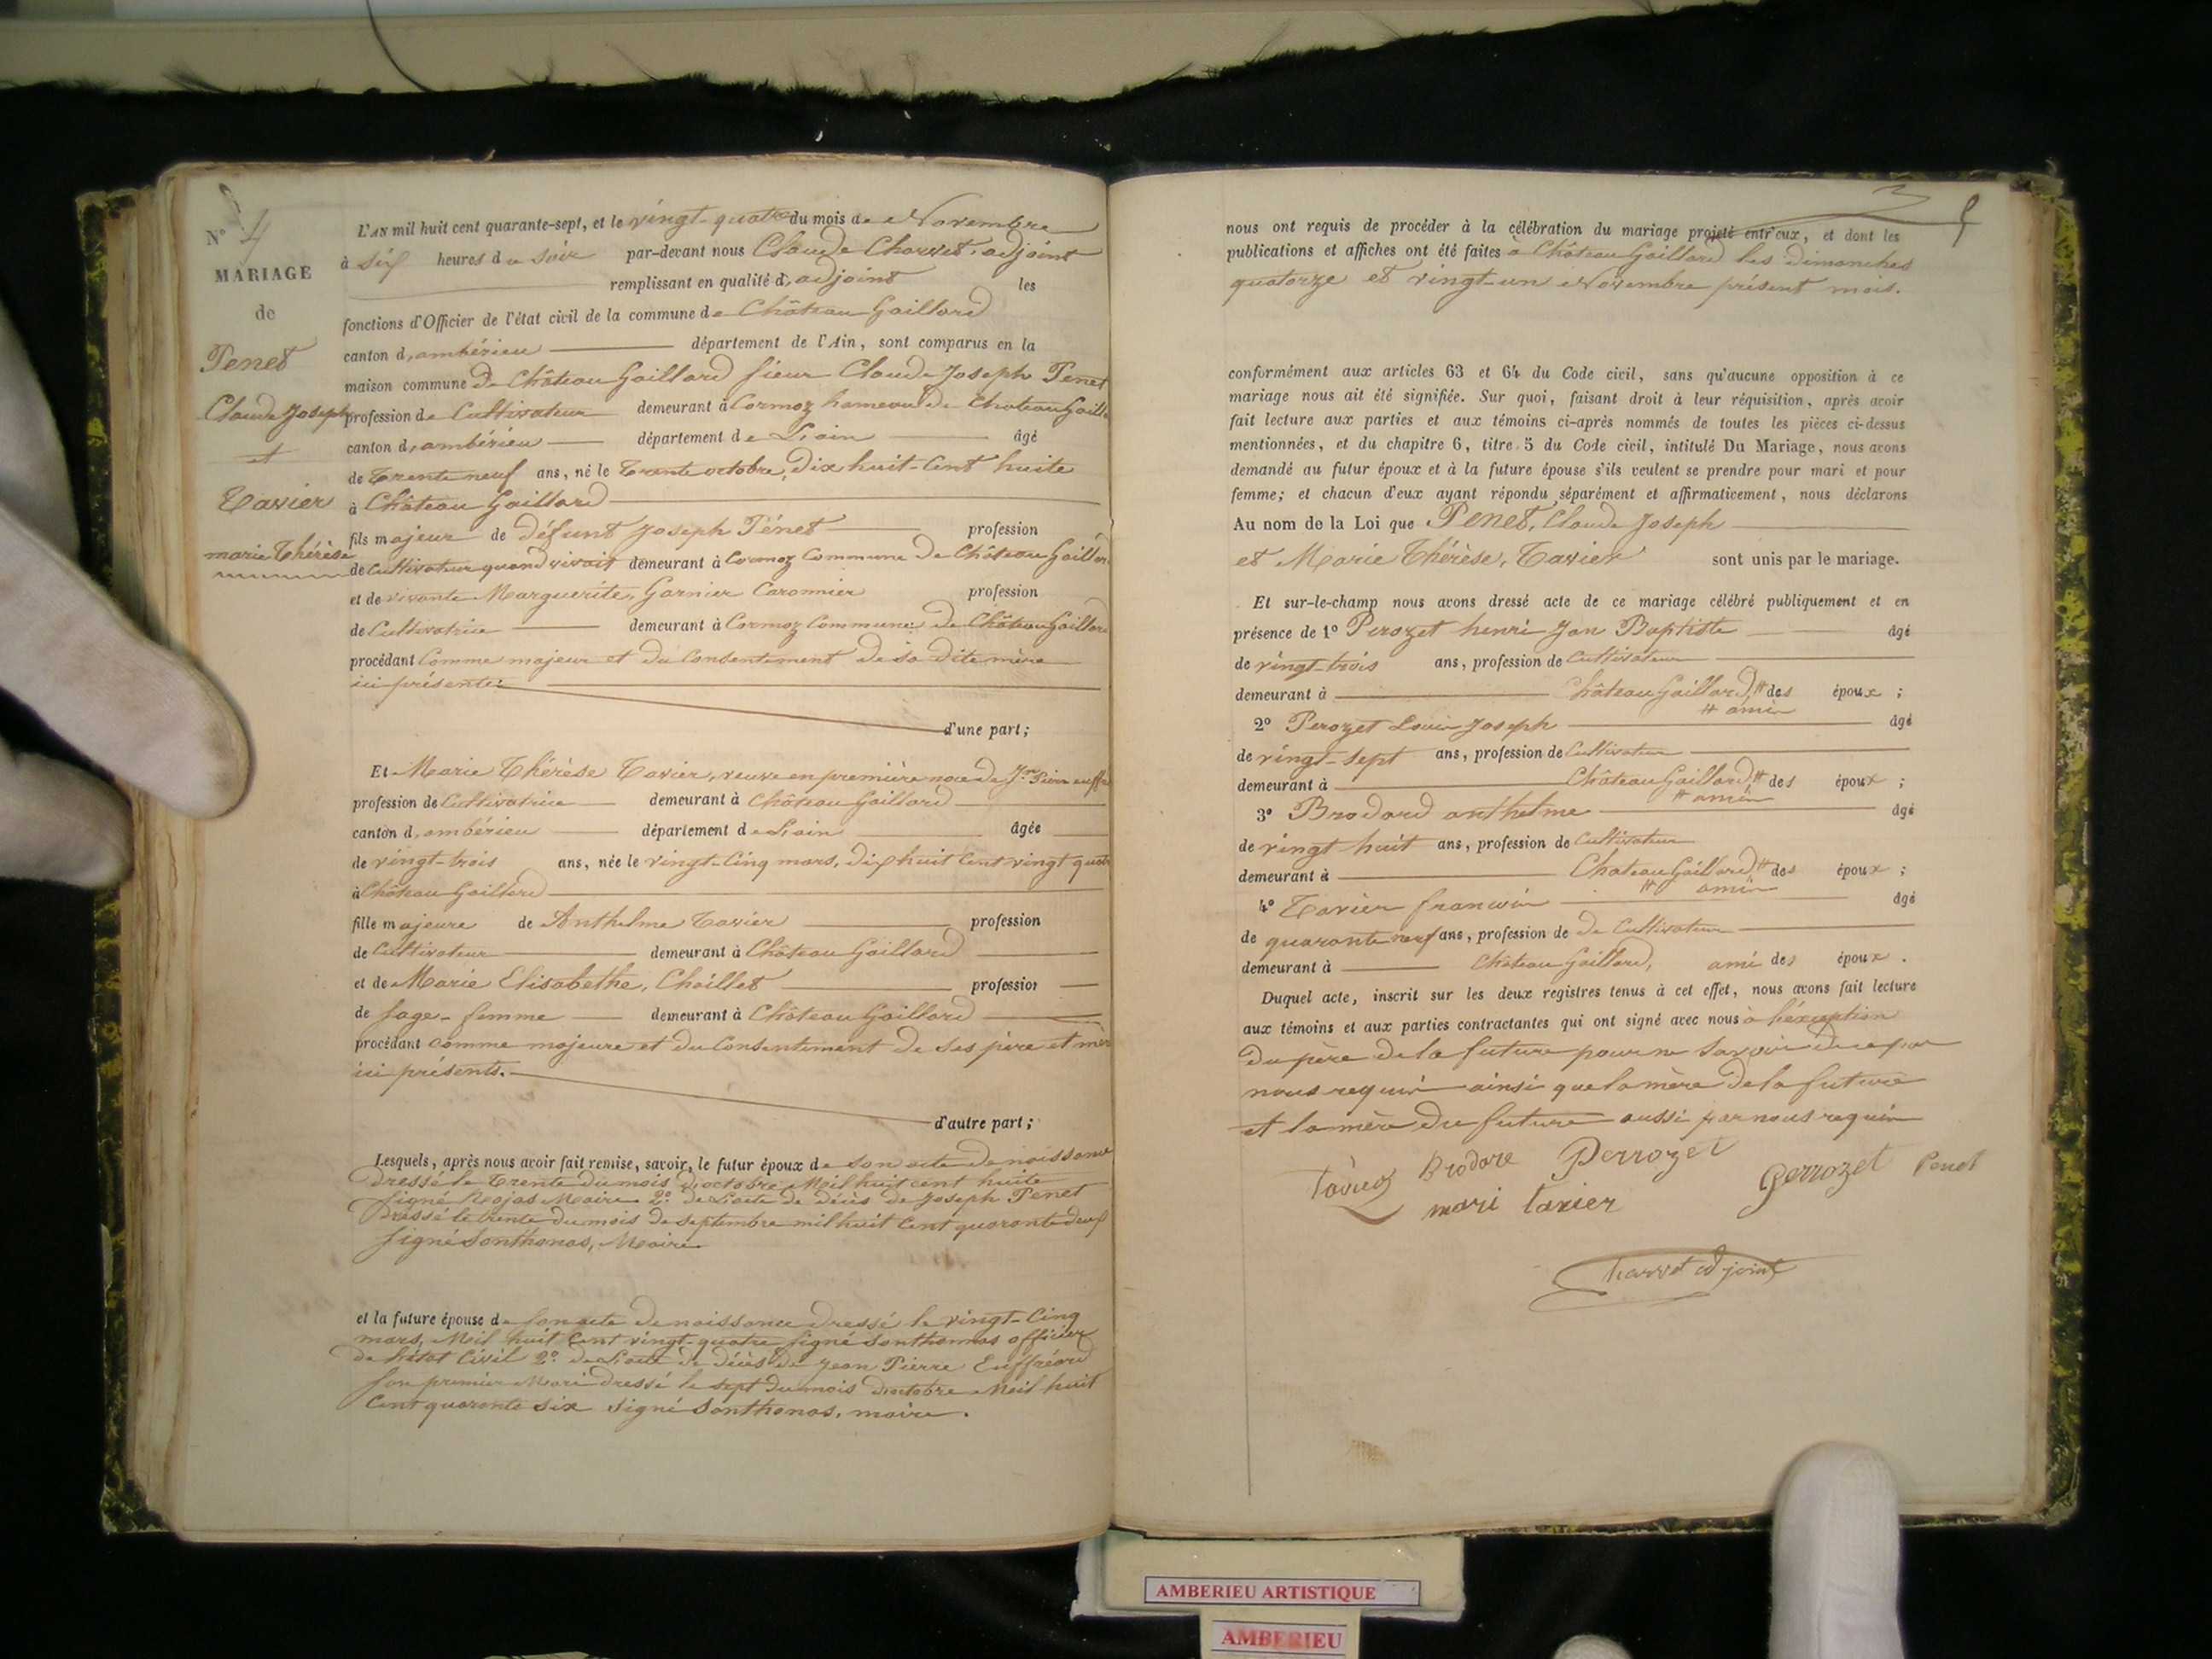 N° 4
MARIAGE
de
Penet
Claude Joseph
et
Tavier
marie Thérèse
L'AN mil huit cent quarante-sept, et le vingt-quatre du mois de Novembre
à six heures du soir par-devant nous Claude Charvet, adjoint
remplissant en qualité d'adjoint les
fonctions d'Officier de l'état civil de la commune de Château Gaillard
canton d'ambérieu département de l'Ain, sont comparus en la
maison commune de Château Gaillard sieur Claude Joseph Penet
profession de Cultivateur demeurant à Cormoz hameau de Chateau Gailla
canton d'ambérieu département de L'ain âgé
de Trente neuf ans, né le trente octobre, Dix huit-Cent huite
à Château Gaillard
fils majeur de défunt Joseph Pénet profession
de Cultivateur quand vivait demeurant à Cormoz Commune de Château Gaillar
et de vivante Marguerite, Garnier Caronnier profession
de Cultivatrice demeurant à Cormoz Commune de Château Gaillard
procédant Comme majeur et du Consentement de sa dite mère
ici présente
d'une part;
Et Marie Thérèse Tavier, veuve en première noce de Jn Pierre euffr
profession de Cultivatrice demeurant à Château Gaillard
canton d'ambérieu département de L'ain âgée
de vingt-trois ans, née le vingt-Cinq mars, dix huit Cent vingt quatr
à Château Gaillard
fille majeure de Anthelme Tavier profession
de Cultivateur demeurant à Château Gaillard
et de Marie Elisabethe, Chaillet profession
de sage-femme demeurant à Château Gaillard
procédant comme majeure et du Consentement de ses père et mèr
ici présents.
d'autre part;
Lesquels, après nous avoir fait remise, savoir, le futur époux de son acte de naissance
dressé le Trente du mois d'octobre Mil huit cent huite
signé Maire 2° de L'acte de décès de Joseph Penet
dressé le trente du mois de septembre mil huit Cent quarante deux
signé Santhonas, Maire
et la future épouse de son acte de naissance dressé le vingt-Cinq
mars, Mil huit Cent vingt-quatre signé Santhonas officier
de l'état Civil 2° de L'acte de décès de Jean Pierre Euffréard
son premier Mari dressé le sept du mois d'octobre Mil huit
Cent quarante six signé Santhonas, maire.
nous ont requis de procéder à la célébration du mariage projeté entr'eux, et dont les
publications et affiches ont été faites à Château Gaillard les dimanches
quatorze et vingt-un Novembre présent mois.
conformément aux articles 63 et 64 du Code civil, sans qu'aucune opposition à ce
mariage nous ait été signifiée. Sur quoi, faisant droit à leur réquisition, après avoir
fait lecture aux parties et aux témoins ci-après nommés de toutes les pièces ci-dessus
mentionnées, et du chapitre 6, titre 5 du Code civil, intitulé Du Mariage, nous avons
demandé au futur époux et à la future épouse s'ils veulent se prendre pour mari et pour
femme; et chacun d'eux ayant répondu séparément et affirmativement, nous déclarons
Au nom de la Loi que Penet, Claude Joseph
et Marie Thérèse, Tavier sont unis par le mariage.
Et sur-le-champ nous avons dressé acte de ce mariage célébré publiquement et en
présence de 1° Perozet henri Jan Baptiste âgé
de vingt-trois ans, profession de Cultivateur
demeurant à Château Gaillard, # des époux;
# amis
2° Perozet Louis Joseph âgé
de vingt-sept ans, profession de Cultivateur
demeurant à Château Gaillard, # des époux;
# amis
3° Brodard anthelme âgé
de vingt huit ans, profession de Cultivateur
demeurant à Chateau Gaillard # des époux;
# amis
4° Tavier francois âgé
de quarante neuf ans, profession de de Cultivateur
demeurant à Château Gaillard, ami des époux.
Duquel acte, inscrit sur les deux registres tenus à cet effet, nous avons fait lecture
aux témoins et aux parties contractantes qui ont signé avec nous à l'éxception
du père de la future pour ne savoir de ce par
nous requis ainsi que la mère de la future
et la mère du future aussi par nous requis
Brodare Perrozet Perrozet Penet
mari tavier
Charvet adjoint
AMBERIEU ARTISTIQUE
AMBERIEU